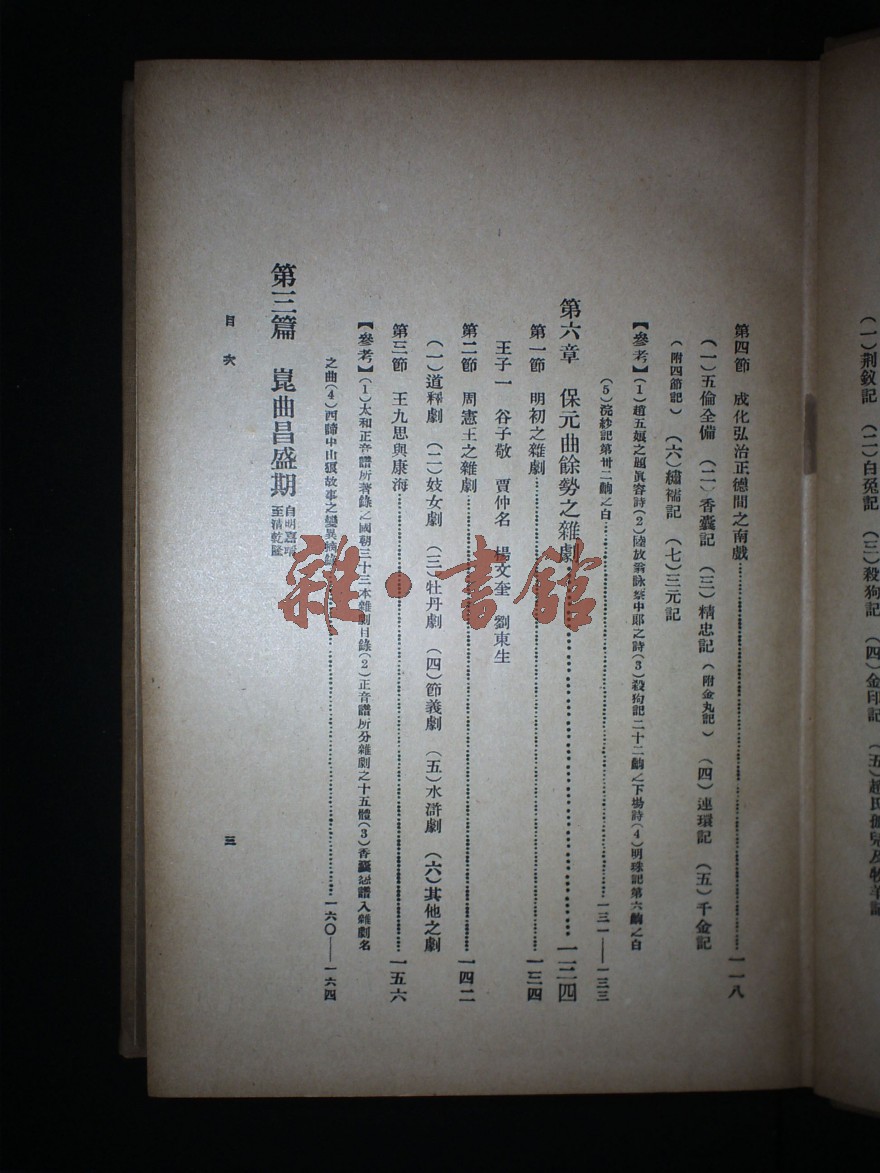 第四節 成化弘治正德間之南戲……一一八
(一)五倫全備 (二)香囊記 (三)精忠記(附金丸記) (四)連環記 (五)千金記
(附四節記) (六)繡襦記 (七)三元記
【參考】(1)趙五娘之題眞容詩(2)陸放翁詠蔡中郎之詩(3)殺狗記二十二齣之下場詩(4)明珠記第六齣之白
(5)浣紗記第卅二齣之白……一三一——一三三
第六章 保元曲餘勢之雜劇……一三四
第一節 明初之雜劇……一三四
王子一 谷子敬 賈仲名 楊文奎 劉東生
第二節 周憲王之雜劇……一四二
(一)道釋劇 (二)妓女劇 (三)牡丹劇 (四)節義劇 (五)水滸劇 (六)其他之劇
第三節 王九思與康海……一五六
【參考】(1)太和正音譜所著錄之國朝三十三本雜劇目錄(2)正音譜所分雜劇之十五體(3)香囊怨譜入雜劇名
之曲(4)西諦中山狼故事之變異……一六〇——一六四
第三篇 崑曲昌盛期 自明嘉靖至清乾隆
目次
三
雜·書館
(一)荆釵記 (二)白兔記 (三)殺狗記 (四)金印記 (五)趙氏孤兒及牧羊記